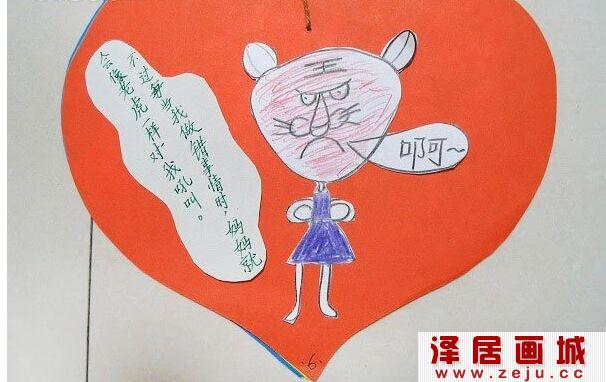 不过每当我做错事情时，妈妈就
会像老虎一样对我吼叫。
王
啊~
·6·
泽居画城
www.zeju.cc